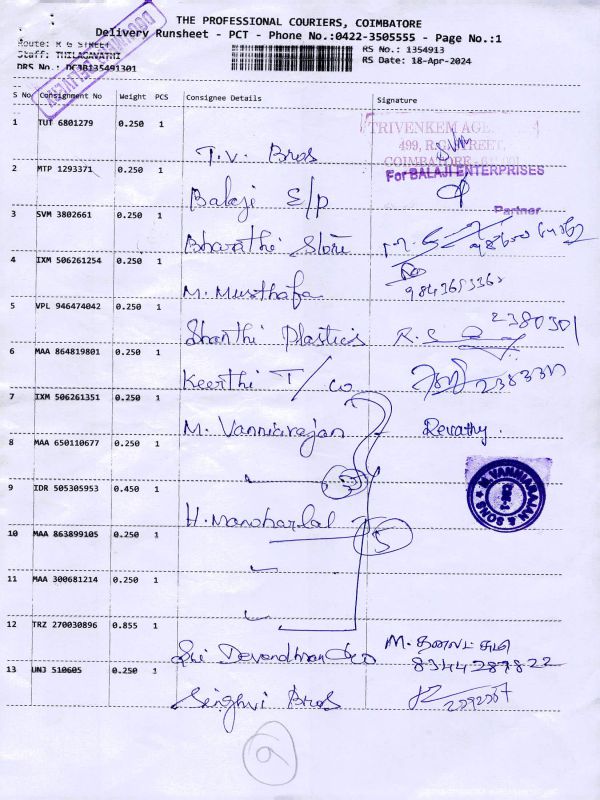 THE PROFESSIONAL COURIERS, COIMBATORE
Delivery Runsheet - PCT - Phone No.:0422-3505555 - Page No.:1
Route: R G STREET
Staff: THILAGAVATHI
DRS No.: DCBB135491301
RS No.: 1354913
RS Date: 18-Apr-2024
S No Consignment No Weight PCS Consignee Details Signature
TRIVENKEM AGE
499, R.G. STREET,
1 TUT 6801279 0.250 1 T.V. Bros
For BALAJI ENTERPRISES
2 MTP 1293371 0.250 1 Balaji E/p
Partner
3 SVM 3802661 0.250 1 Bharathi Store
4 IXM 506261254 0.250 1 M. Musthafa
5 VPL 946474042 0.250 1 Shanthi Plastics 2380301
6 MAA 864819801 0.250 1 Keerthi T/co
7 IXM 506261351 0.250 1 M. Vanniarajan Revathy.
8 MAA 650110677 0.250 1
M. VANNIARAJAN & SONS
9 IDR 505305953 0.450 1 H. Manoharlal
10 MAA 863899105 0.250 1 5
11 MAA 300681214 0.250 1
12 TRZ 270030896 0.855 1 Sri Devendhran
8344287822
13 UNJ 510605 0.250 1 Singhvi Bros
9